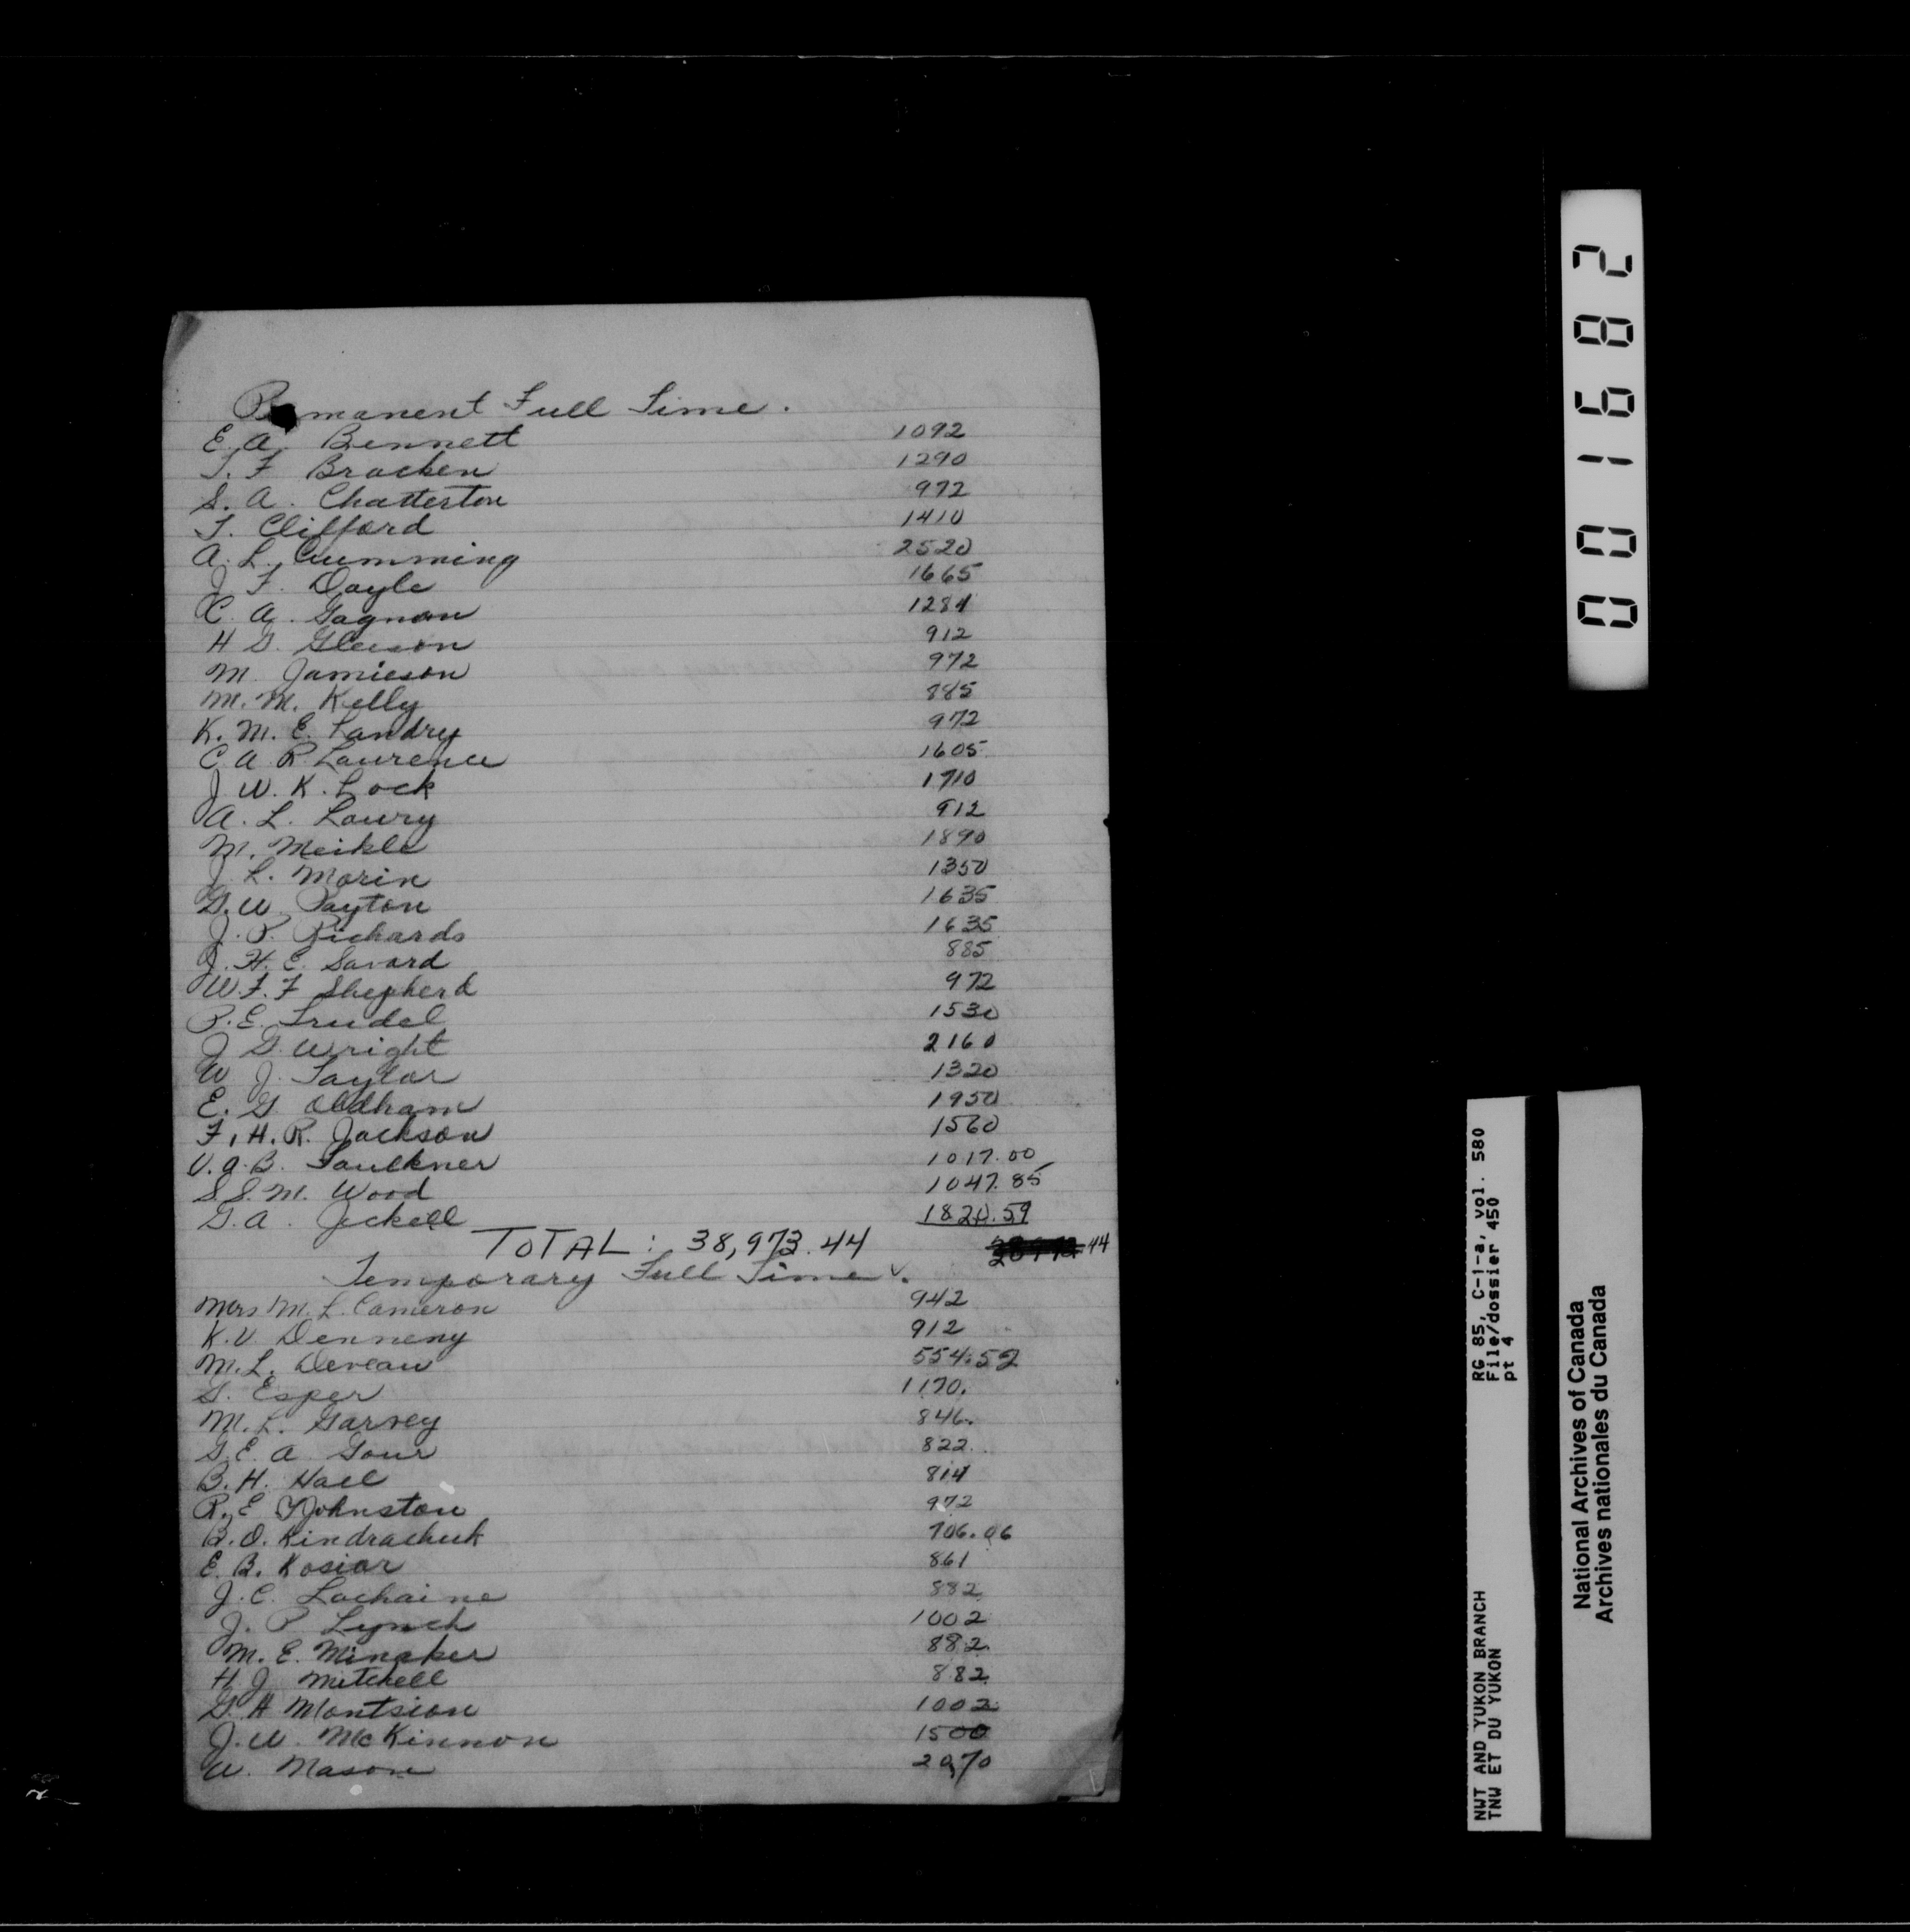 Permanent Full Time.
E. A. Bennett 1092
T. F Bracken 1290
S. A. Chatterton 972
T. Clifford 1410
A. L. Cumming 2520
J F. Doyle 1665
C. A. Gagnon 1284
H G. Gleeson 912
M. Jamieson 972
M. M. Kelly 885
K. M. E. Landry 972
C. A. R. Laurence 1605
J W. K. Lock 1710
A. L. Lowry 912
M. Meikle 1890
J L. Morin 1350
G. W. Payton 1635
J. P. Richards 1635
J. H. E. Savard 885
W. F. F Shepherd 972
P. E. Trudel 1530
J G. Wright 2160
W J. Taylor 1320
E. G Oldham 1950
F. H. R. Jackson 1560
V. A. B. Faulkner 1017.00
S. S. M. Wood 1047.85
G. A. Jeckell 1820.59
TOTAL: 38,973.44 44
Temporary Full Time.
Mrs M. L. Cameron 942
K. V Denneny 912
M. L. Deveau 554.52
G. Esper 1170.
M. L. Garvey 846.
G. E. A Gour 822.
B. H. Hall 814
R. E Johnston 972
B. O. Kindrachuk 706.06
E. B. Kosiar 861
J. C. Lachaine 882
J. P Lynch 1002
M. E. Minaker 882
H J Mitchell 882
G. H Montsion 1002
J. W. McKinnon 1500
W. Mason 2070
001682
RG 85, C-1-a, vol. 580
File/dossier 450
pt 4
NWT AND YUKON BRANCH
TNW ET DU YUKON
National Archives of Canada
Archives nationales du Canada